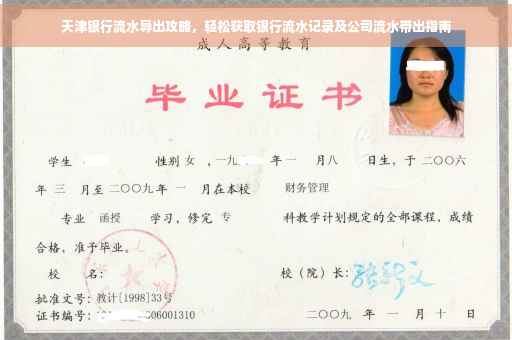 天津银行流水导出攻略，轻松获取银行流水记录及公司流水带出指南
成人高等教育
毕业证书
学生 性别 女 ，一九 年 一 月 八 日生，于 二〇〇六
年 三 月至 二〇〇九 年 一 月在本校 财务管理
专业 函授 学习，修完 专 科教学计划规定的全部课程，成绩
合格，准予毕业。
校 名： 校（院）长：
批准文号：教计[1998]33号
证书编号： 06001310 二〇〇九 年 一 月 十 日